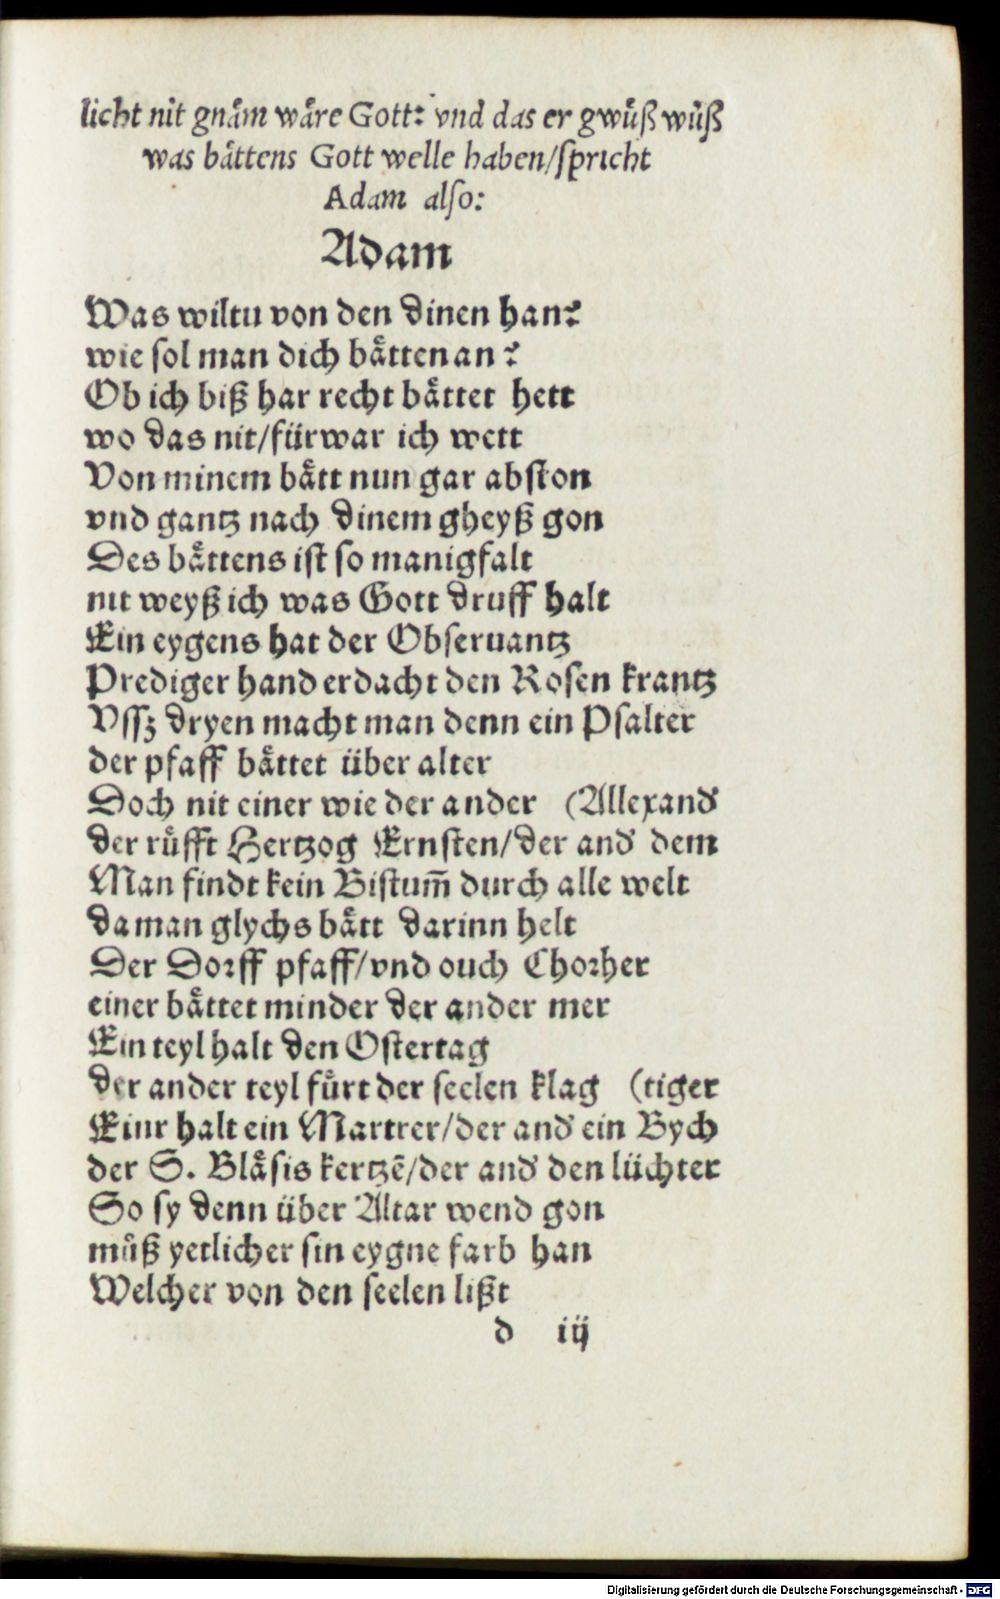 licht nit gnäm wäre Gott: vnd das er gwüß wüß
was bättens Gott welle haben/spricht
Adam also:
Adam
Was wiltu von den dinen han?
wie sol man dich bätten an?
Ob ich biß har recht bättet hett
wo das nit/fürwar ich wett
Von minem bätt nun gar abston
vnd gantz nach dinem gheyß gon
Des bättens ist so manigfalt
nit weyß ich was Gott druff halt
Ein eygens hat der Obseruantz
Prediger hand erdacht den Rosen krantz
Vssz dryen macht man denn ein Psalter
der pfaff bättet über alter
Doch nit einer wie der ander (Allexand̕
der rüfft Hertzog Ernsten/der and̕ dem
Man findt kein Bistum̄ durch alle welt
da man glychs bätt darinn helt
Der Dorff pfaff/vnd ouch Chorher
einer bättet minder der ander mer
Ein teyl halt den Ostertag
der ander teyl fürt der seelen klag (tiger
Einr halt ein Martrer/der and̕ ein Bych
der S. Bläsis kertzē/der and̕ den lüchter
So sy denn über Altar wend gon
müß yetlicher sin eygne farb han
Welcher von den seelen lißt
d iij
Digitalisierung gefördert durch die Deutsche Forschungsgemeinschaft - DFG